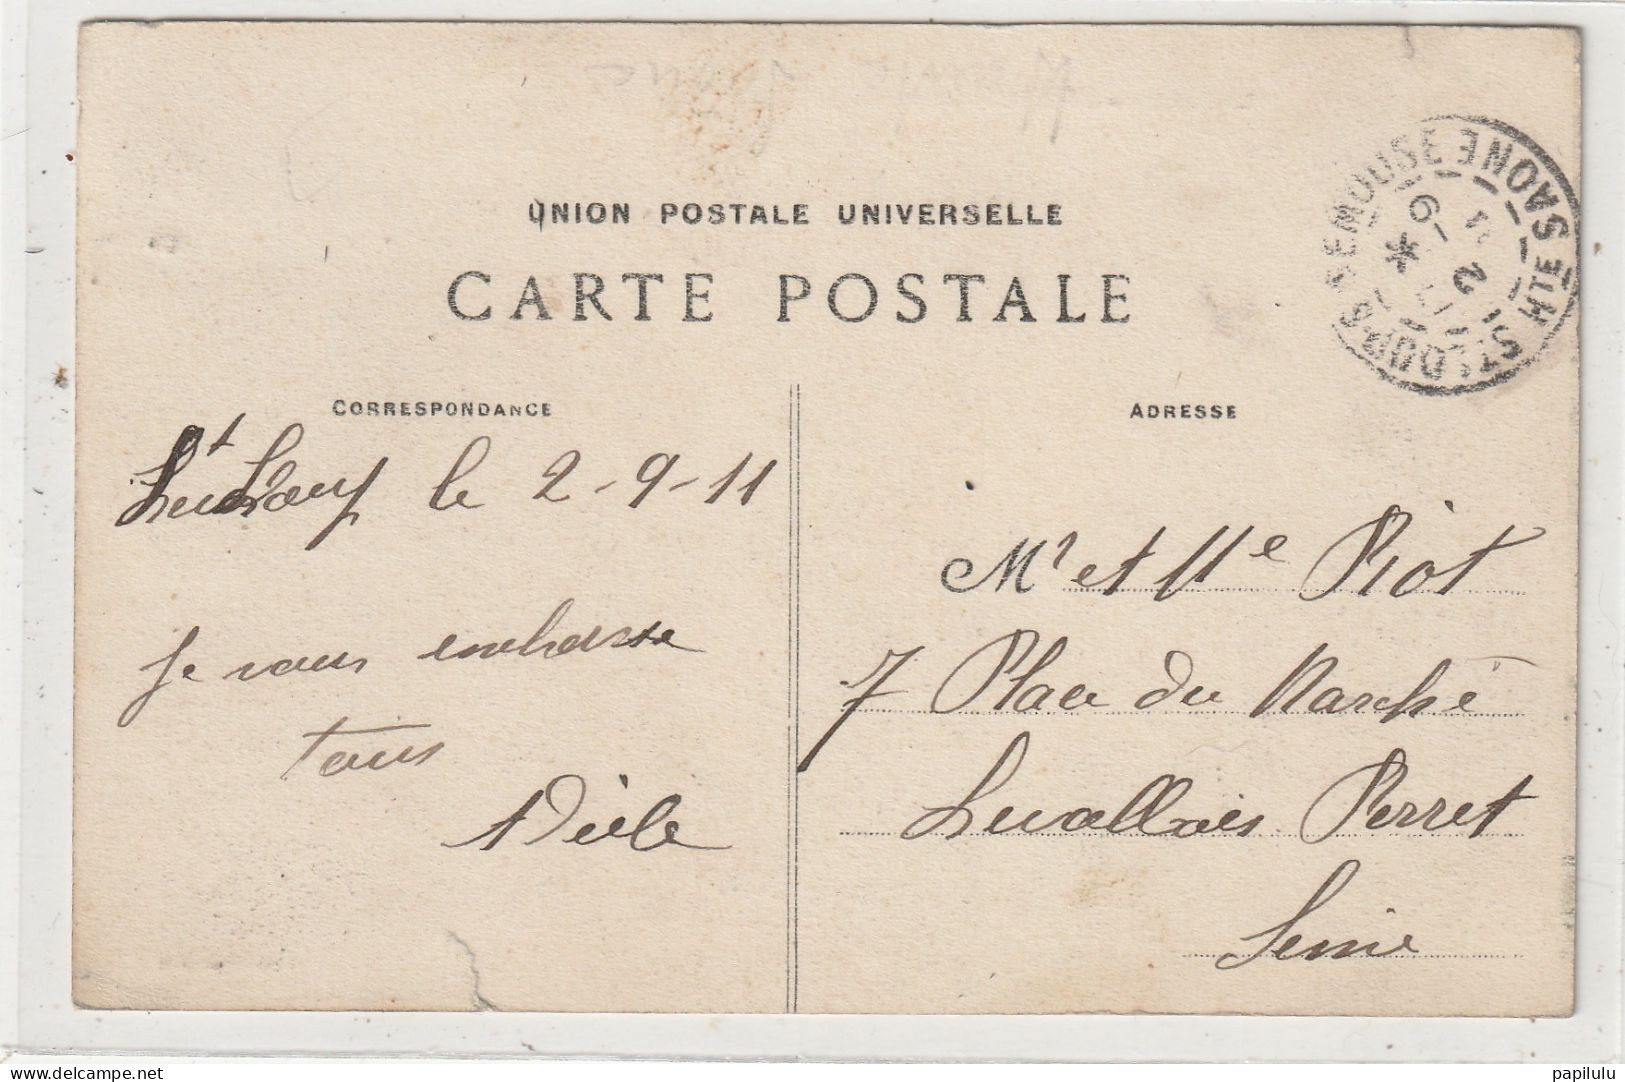 UNION POSTALE UNIVERSELLE
CARTE POSTALE
CORRESPONDANCE
ADRESSE
St LOUP S. SEMOUSE HTE SAONE
St Loup le 2-9-11
Je vous embrasse
tous
Mr et Me Riot
7 Place du Marché
Levallois Perret
Seine
www.delcampe.net
papilulu